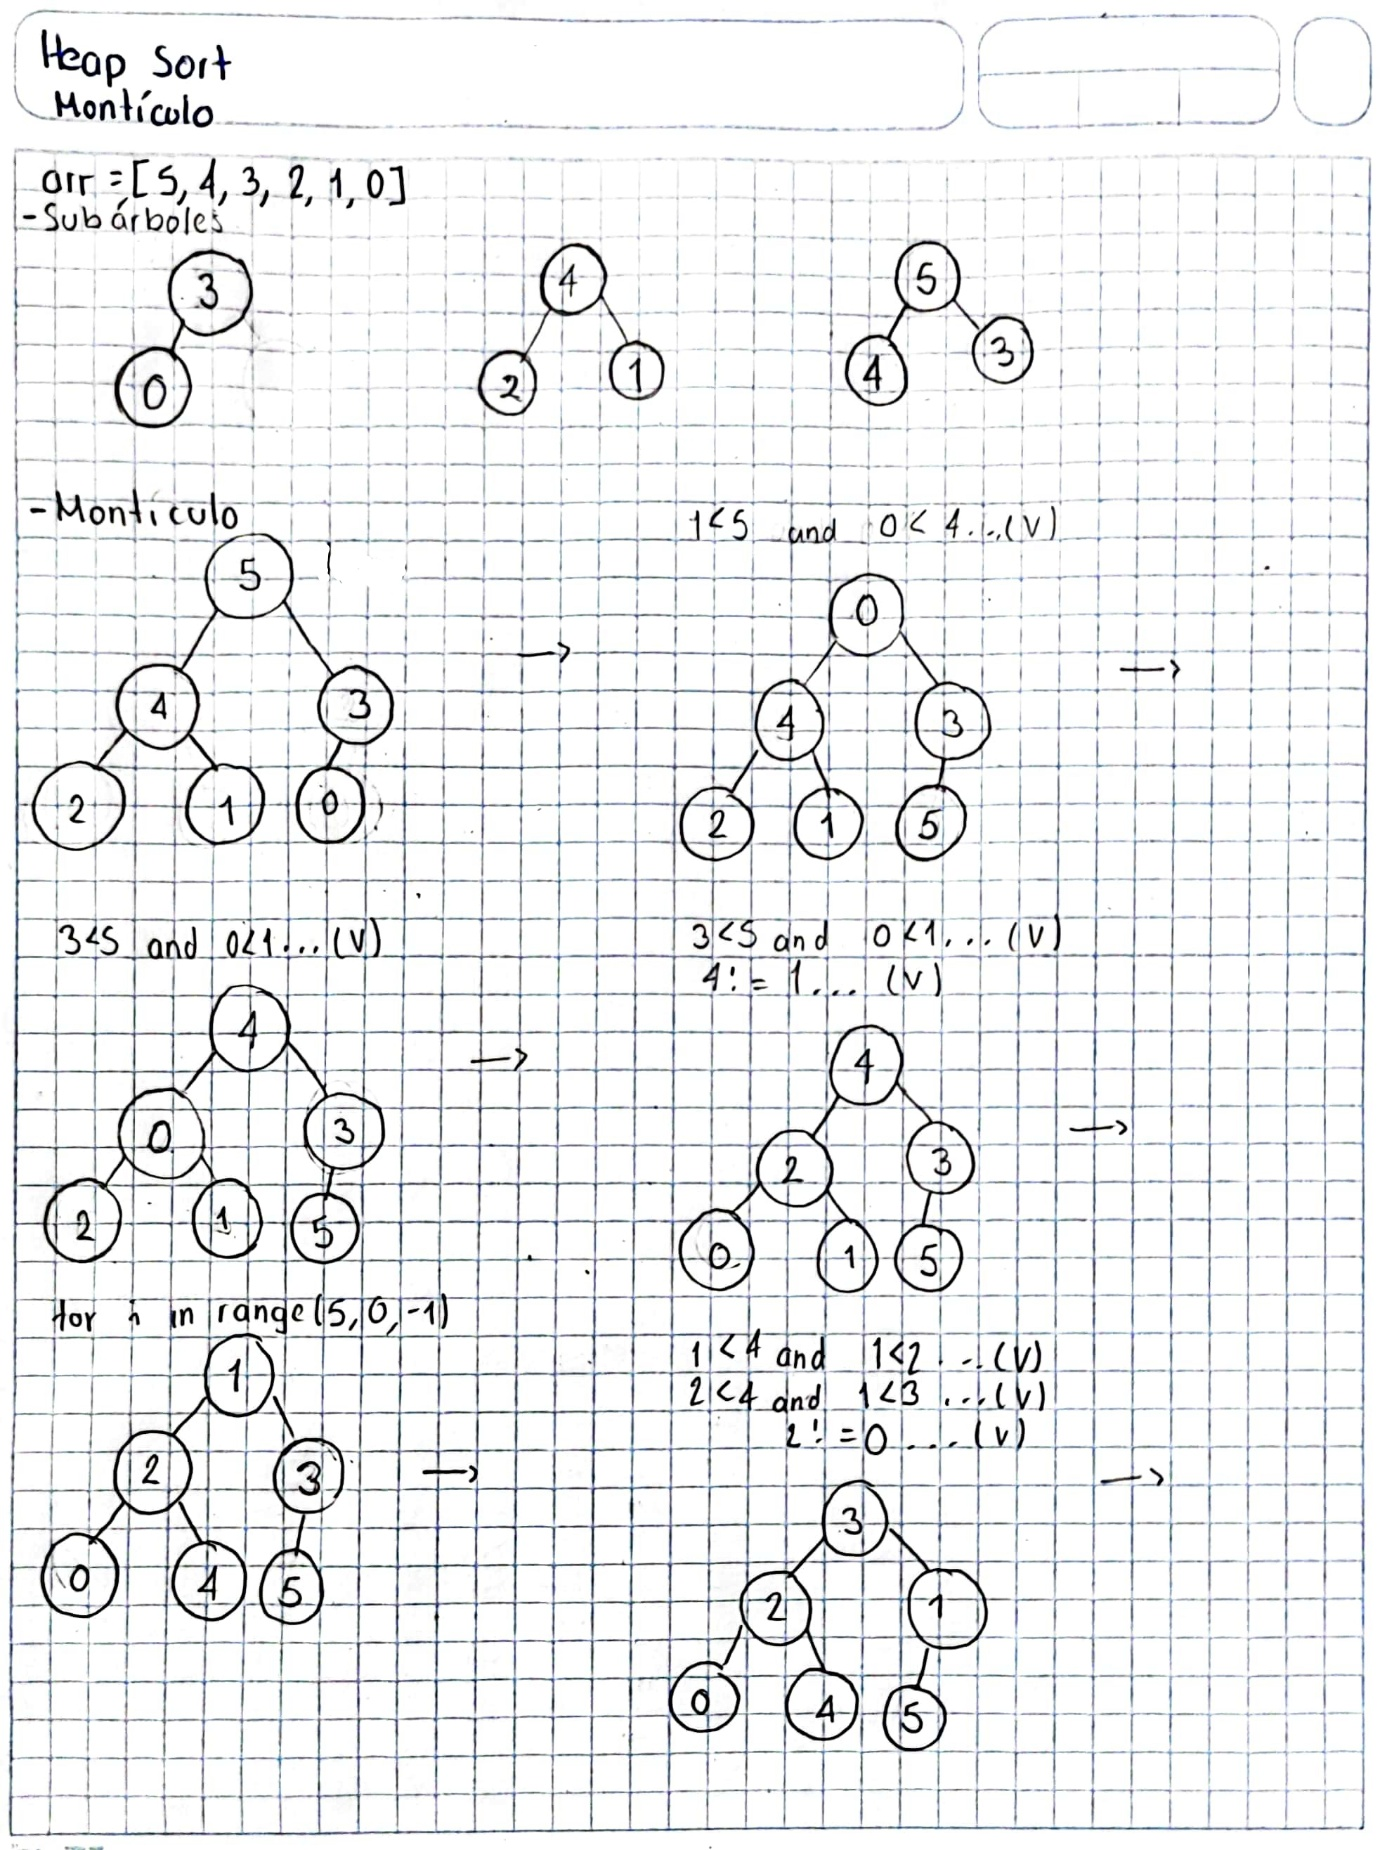 Heap Sort
Montículo
arr = [5, 4, 3, 2, 1, 0]
- Subárboles
3
0
4
2 1
5
4 3
- Montículo
5
4 3
2 1 0
→
1<5 and 0<4...(V)
0
4 3
2 1 5
→
3<5 and 0<1...(V)
4
0 3
2 1 5
→
3<5 and 0<1...(V)
4!=1...(V)
4
2 3
0 1 5
→
for i in range(5,0,-1)
1
2 3
0 4 5
→
1<4 and 1<2...(V)
2<4 and 1<3...(V)
2!=0...(V)
3
2 1
0 4 5
→